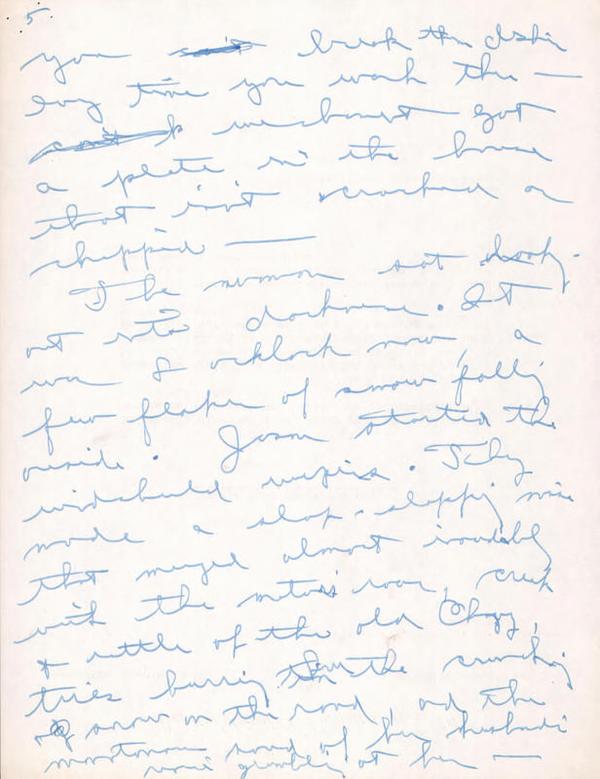 5
you break the dishes
evy time you wash them —
we havent got
a plate in the house
that isn't cracked or
chipped —
The woman sat looking
out into darkness. It
was 8 oclock now, a
few flakes of snow falling
outside. Jason started the
windshield wipers. They
made a slap-slapping noise
that merged almost inaudibly
with the motors roar, creak
& rattle of the old Chevy,
tires burring the crunching
of snow on the road, and the
monotonous sound of her husbands
voice grumbling at her —